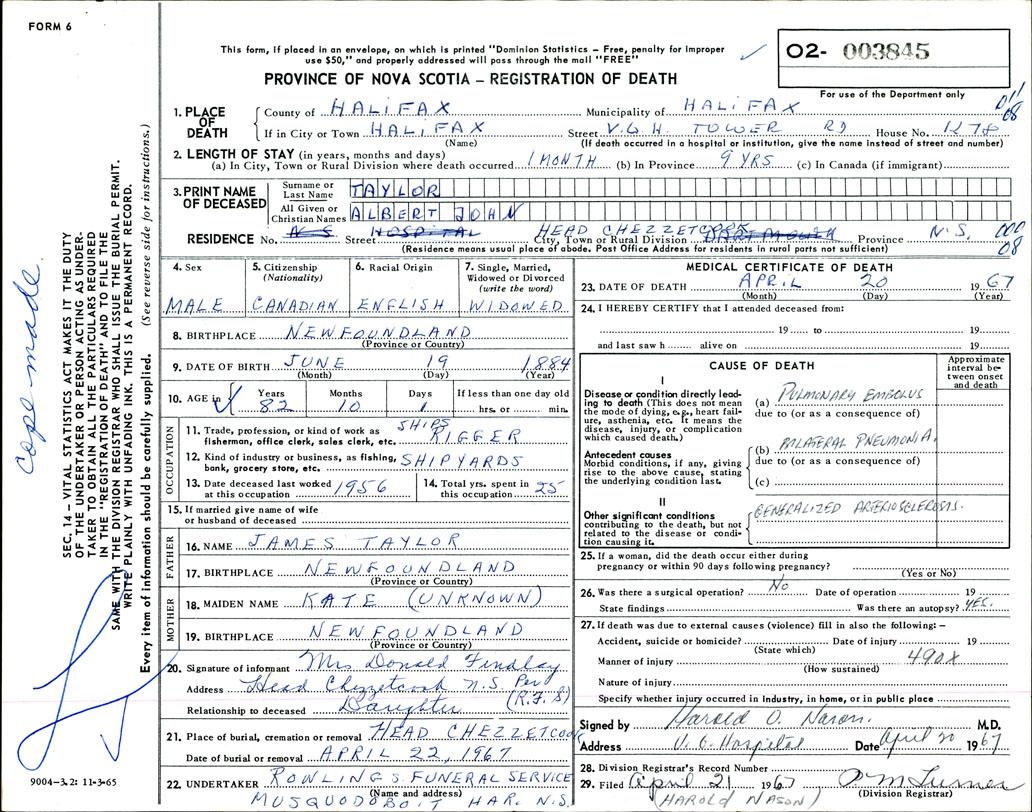 FORM 6
This form, if placed in an envelope, on which is printed "Dominion Statistics – Free, penalty for improper
use $50," and properly addressed will pass through the mail "FREE"
PROVINCE OF NOVA SCOTIA – REGISTRATION OF DEATH
02- 003845
For use of the Department only
1. PLACE OF DEATH
County of HALIFAX Municipality of HALIFAX
If in City or Town HALIFAX Street V.G.H. TOWER RD House No. 1278
(Name) (If death occurred in a hospital or institution, give the name instead of street and number)
08
2. LENGTH OF STAY (in years, months and days)
(a) In City, Town or Rural Division where death occurred 1 MONTH (b) In Province 9 YRS (c) In Canada (if immigrant)
3. PRINT NAME OF DECEASED
Surname or Last Name TAYLOR
All Given or Christian Names ALBERT JOHN
RESIDENCE No. N S Street HOSPITAL City, Town or Rural Division HEAD CHEZZETCOOK DARTMOUTH Province N.S.
000
08
(Residence means usual place of abode. Post Office Address for residents in rural parts not sufficient)
4. Sex MALE
5. Citizenship (Nationality) CANADIAN
6. Racial Origin ENGLISH
7. Single, Married, Widowed or Divorced (write the word) WIDOWED
8. BIRTHPLACE NEWFOUNDLAND
(Province or Country)
9. DATE OF BIRTH JUNE 19 1884
(Month) (Day) (Year)
10. AGE in Years 82 Months 10 Days 1 If less than one day old hrs. or min.
OCCUPATION
11. Trade, profession or kind of work as fisherman, office clerk, sales clerk, etc. SHIPS RIGGER
12. Kind of industry or business, as fishing, bank, grocery store, etc. SHIPYARDS
13. Date deceased last worked at this occupation 1956
14. Total yrs. spent in this occupation 25
15. If married give name of wife or husband of deceased
FATHER
16. NAME JAMES TAYLOR
17. BIRTHPLACE NEWFOUNDLAND
(Province or Country)
MOTHER
18. MAIDEN NAME KATE (UNKNOWN)
19. BIRTHPLACE NEWFOUNDLAND
(Province or Country)
20. Signature of informant Mrs Donald Findlay
Address Head Chezzetcook N.S. Per (R.F.S)
Relationship to deceased Daughter
21. Place of burial, cremation or removal HEAD CHEZZETCOOK
Date of burial or removal APRIL 22, 1967
22. UNDERTAKER ROWLINGS FUNERAL SERVICE
(Name and address)
MUSQUODOBOIT HAR. N.S.
MEDICAL CERTIFICATE OF DEATH
23. DATE OF DEATH APRIL 20 1967
(Month) (Day) (Year)
24. I HEREBY CERTIFY that I attended deceased from:
19 to 19
and last saw h alive on 19
CAUSE OF DEATH
Approximate interval between onset and death
I
Disease or condition directly leading to death (This does not mean the mode of dying, e.g., heart failure, asthenia, etc. It means the disease, injury, or complication which caused death.)
(a) PULMONARY EMBOLUS
due to (or as a consequence of)
Antecedent causes
Morbid conditions, if any, giving rise to the above cause, stating the underlying condition last.
(b) BILATERAL PNEUMONIA.
due to (or as a consequence of)
(c)
II
Other significant conditions contributing to the death, but not related to the disease or condition causing it.
GENERALIZED ARTERIOSCLEROSIS.
25. If a woman, did the death occur either during pregnancy or within 90 days following pregnancy?
(Yes or No)
26. Was there a surgical operation? No Date of operation 19
State findings Was there an autopsy? YES.
27. If death was due to external causes (violence) fill in also the following: –
Accident, suicide or homicide? Date of injury 19
(State which)
Manner of injury 490X
(How sustained)
Nature of injury
Specify whether injury occurred in Industry, in home, or in public place
Signed by Harold O. Nason. M.D.
Address V.G. Hospital Date April 20 1967
28. Division Registrar's Record Number
29. Filed April 21 1967
(HAROLD NASON) (Division Registrar)
Cope made.
SEC. 14 – VITAL STATISTICS ACT MAKES IT THE DUTY
OF THE UNDERTAKER OR PERSON ACTING AS UNDER-
TAKER TO OBTAIN ALL THE PARTICULARS REQUIRED
IN THE "REGISTRATION OF DEATH" AND TO FILE THE
SAME WITH THE DIVISION REGISTRAR WHO SHALL ISSUE THE BURIAL PERMIT.
WRITE PLAINLY WITH UNFADING INK. THIS IS A PERMANENT RECORD.
Every item of information should be carefully supplied. (See reverse side for instructions.)
9004-3.2: 11-3-65